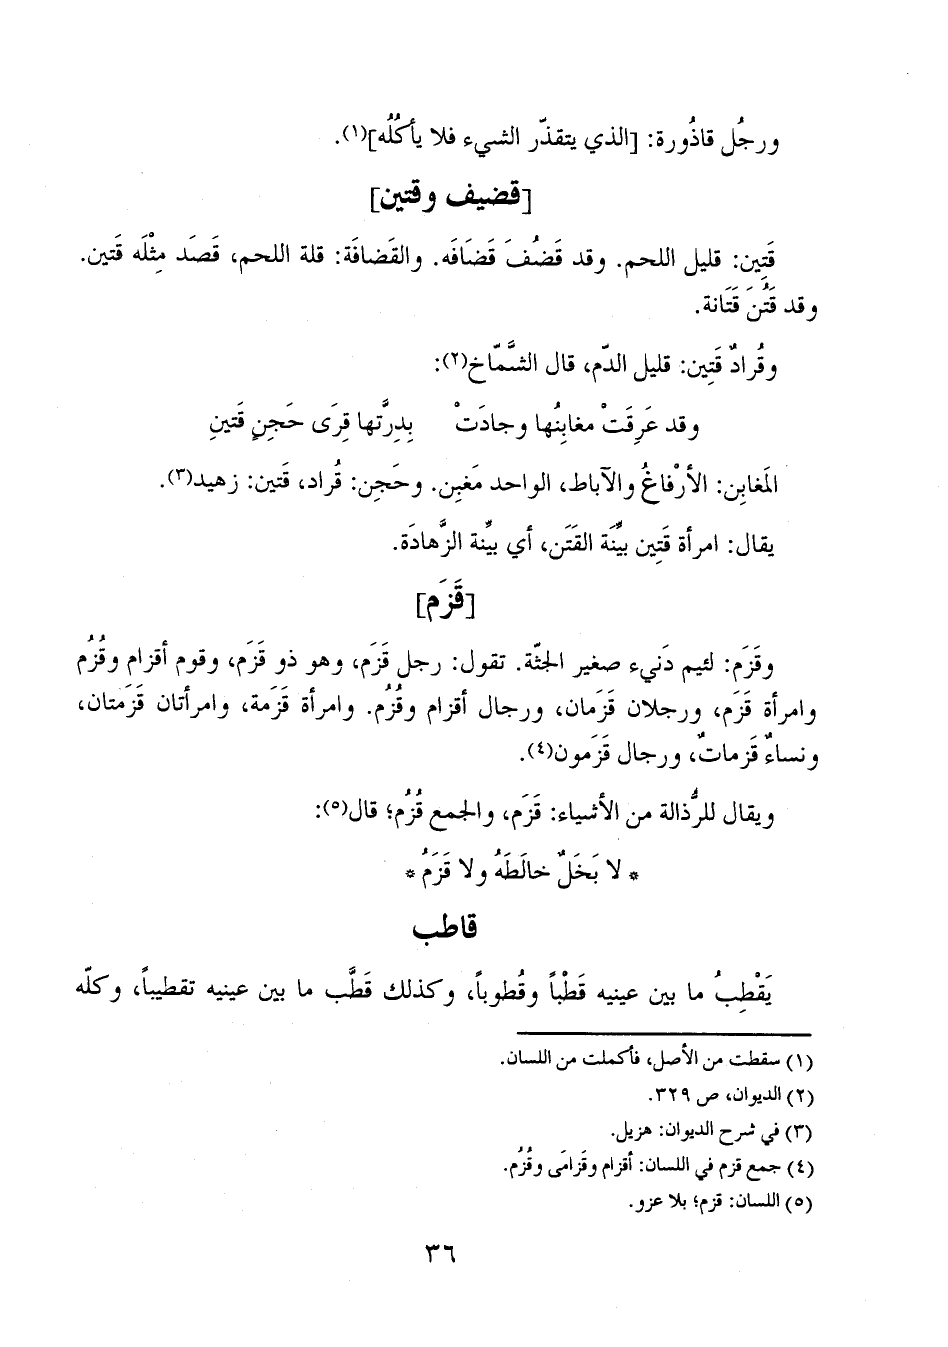 ورجُل قاذُورة: [الذي يتقذّر الشيء فلا يأكُلُه](١).
[قضيف وقتين]
قَتِين: قليل اللحم. وقد قَضُفَ قَضَافَه. والقَضافَة: قلة اللحم، قَصَد مِثْلَه قَتين.
وقد قَتُنَ قَتَانة.
وقُرادٌ قَتِين: قليل الدّم، قال الشَّمّاخ(٢):
وقد عَرِقَتْ مغابِنُها وجادَتْ بِدِرَّتها قِرَى حَجَنٍ قَتينِ
المَغابِن: الأرْفاغُ والآباط، الواحد مَغبِن. وحَجن: قُراد، قَتين: زهيد(٣).
يقال: امرأة قَتِين بيِّنَة القَتَن، أي بيِّنة الزَّهادَة.
[قَزَم]
وقَزَم: لئيم دَنيء صغير الجثّة. تقول: رجل قَزَم، وهو ذو قَزَم، وقوم أقزام وقُزُم
وامرأة قَزَم، ورجلان قَزَمان، ورجال أقزام وقُزُم. وامرأة قَزَمة، وامرأتان قَزَمتان،
ونساءٌ قَزماتٌ، ورجال قَزَمون(٤).
ويقال للرُّذالة من الأشياء: قَزَم، والجمع قُزُم؛ قال(٥):
* لا بَخَلٌ خالَطَهُ ولا قَزَمُ *
قاطب
يَقْطِبُ ما بين عينيه قَطْباً وقُطوباً، وكذلك قَطَّب ما بين عينيه تقطيباً، وكلّه
(١) سقطت من الأصل، فأكملت من اللسان.
(٢) الديوان، ص ٣٢٩.
(٣) في شرح الديوان: هزيل.
(٤) جمع قزم في اللسان: أقزام وقَزامَى وقُزُم.
(٥) اللسان: قزم؛ بلا عزو.
٣٦